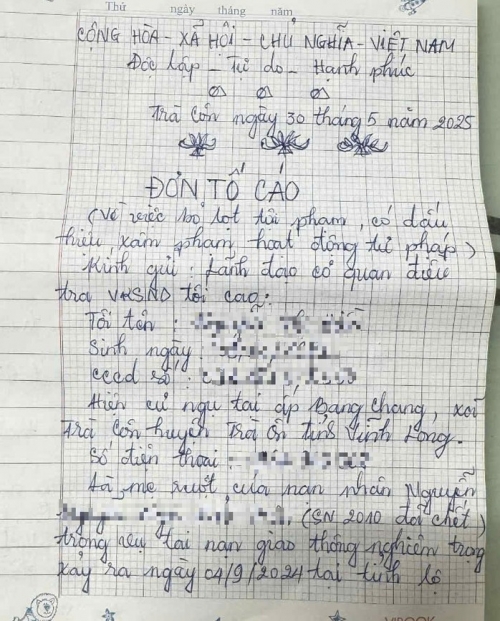 Thứ ngày tháng năm
CỘNG HÒA - XÃ HỘI - CHỦ NGHĨA - VIỆT NAM
Độc lập - Tự do - Hạnh phúc
Trà Côn ngày 30 tháng 5 năm 2025
ĐƠN TỐ CÁO
(Về việc bỏ lọt tội phạm, có dấu
hiệu xâm phạm hoạt động tư pháp)
Kính gửi : Lãnh đạo cơ quan điều
tra VKSND tối cao:
Tôi tên :
Sinh ngày :
cccd số :
Hiện cư ngụ tại ấp Bang Chang, xã
Trà Côn huyện Trà Ôn tỉnh Vĩnh Long.
Số điện thoại :
Là mẹ ruột của nạn nhân Nguyễn
(SN 2010 đã chết)
trong vụ tai nạn giao thông nghiêm trọng
xảy ra ngày 04/9/2024 tại tỉnh lộ